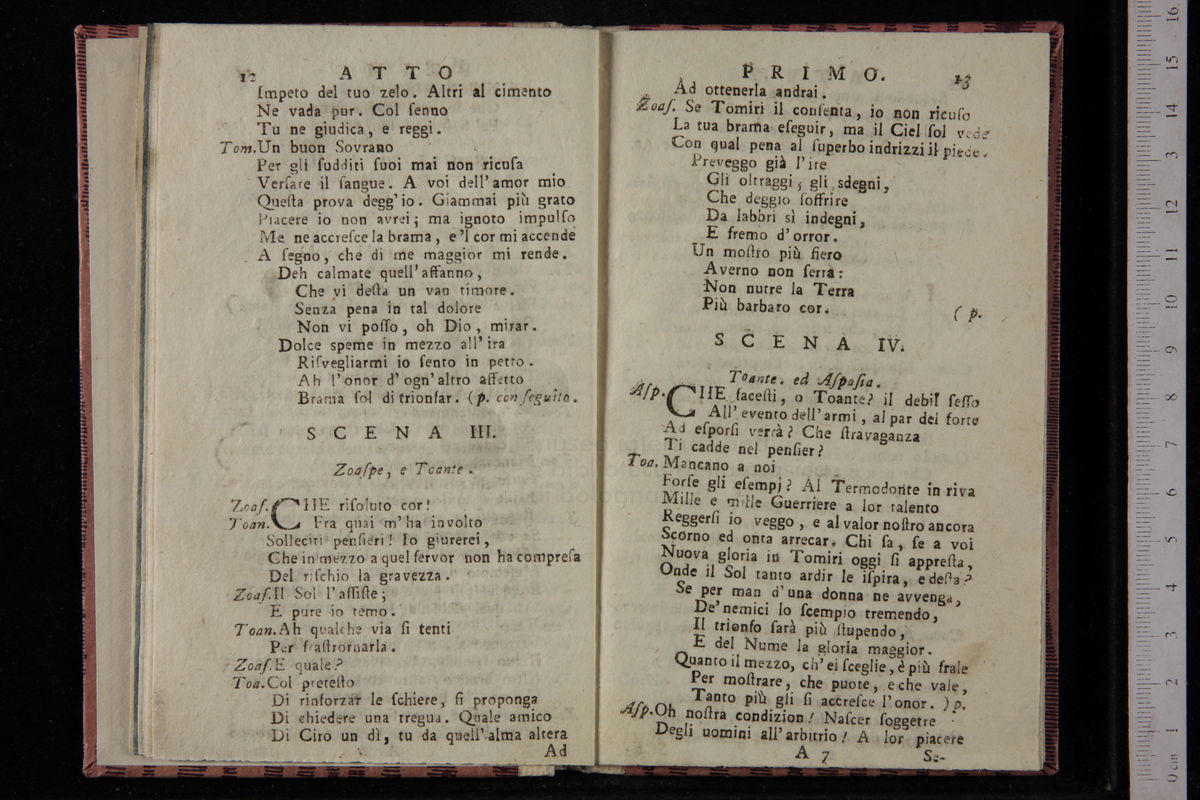 12 ATTO
Impeto del tuo zelo. Altri al cimento
Ne vada pur. Col ſenno
Tu ne giudica, e reggi.
Tom. Un buon Sovrano
Per gli ſudditi ſuoi mai non ricuſa
Verſare il ſangue. A voi dell'amor mio
Queſta prova degg'io. Giammai più grato
Piacere io non avrei; ma ignoto impulſo
Me ne accreſce la brama, e'l cor mi accende
A ſegno, che di me maggior mi rende.
Deh calmate quell'affanno,
Che vi deſta un van timore.
Senza pena in tal dolore
Non vi poſſo, oh Dio, mirar.
Dolce speme in mezzo all'ira
Riſvegliarmi io ſento in petto.
Ah l'onor d'ogn'altro affetto
Brama ſol di trionfar. (p. con ſeguito.
SCENA III.
Zoaſpe, e Toante.
Zoaſ. CHE riſoluto cor!
Toan. Fra quai m'ha involto
Solleciti penſieri! Io giurerei,
Che in mezzo a quel fervor non ha compreſa
Del riſchio la gravezza.
Zoaſ. Il Sol l'aſſiſte;
E pure io temo.
Toan. Ah qualche via ſi tenti
Per fraſtrornarla.
Zoaſ. E quale?
Toa. Col preteſto
Di rinforzar le ſchiere, ſi proponga
Di chiedere una tregua. Quale amico
Di Ciro un dì, tu da quell'alma altera
Ad
PRIMO. 13
Ad ottenerla andrai.
Zoaſ. Se Tomiri il conſenta, io non ricuſo
La tua brama eſeguir, ma il Ciel ſol vede
Con qual pena al ſuperbo indrizzi il piede.
Preveggo già l'ire
Gli oltraggi, gli sdegni,
Che deggio ſoffrire
Da labbri sì indegni,
E fremo d'orror.
Un moſtro più fiero
Averno non ſerra:
Non nutre la Terra
Più barbaro cor. (p.
SCENA IV.
Toante. ed Aſpaſia.
Aſp. CHE faceſti, o Toante? il debil ſeſſo
All'evento dell'armi, al par del forte
Ad eſporſi verrà? Che ſtravaganza
Ti cadde nel penſier?
Toa. Mancano a noi
Forſe gli eſempj? Al Termodonte in riva
Mille e mille Guerriere a lor talento
Reggerſi io veggo, e al valor noſtro ancora
Scorno ed onta arrecar. Chi ſa, ſe a voi
Nuova gloria in Tomiri oggi ſi appreſta,
Onde il Sol tanto ardir le iſpira, e deſta?
Se per man d'una donna ne avvenga,
De'nemici lo ſcempio tremendo,
Il trionfo ſarà più ſtupendo,
E del Nume la gloria maggior.
Quanto il mezzo, ch'ei ſceglie, è più frale
Per moſtrare, che puote, e che vale,
Tanto più gli ſi accreſce l'onor. )p.
Aſp. Oh noſtra condizion! Naſcer ſoggette
Degli uomini all'arbitrio! A lor piacere
A 7 Se-